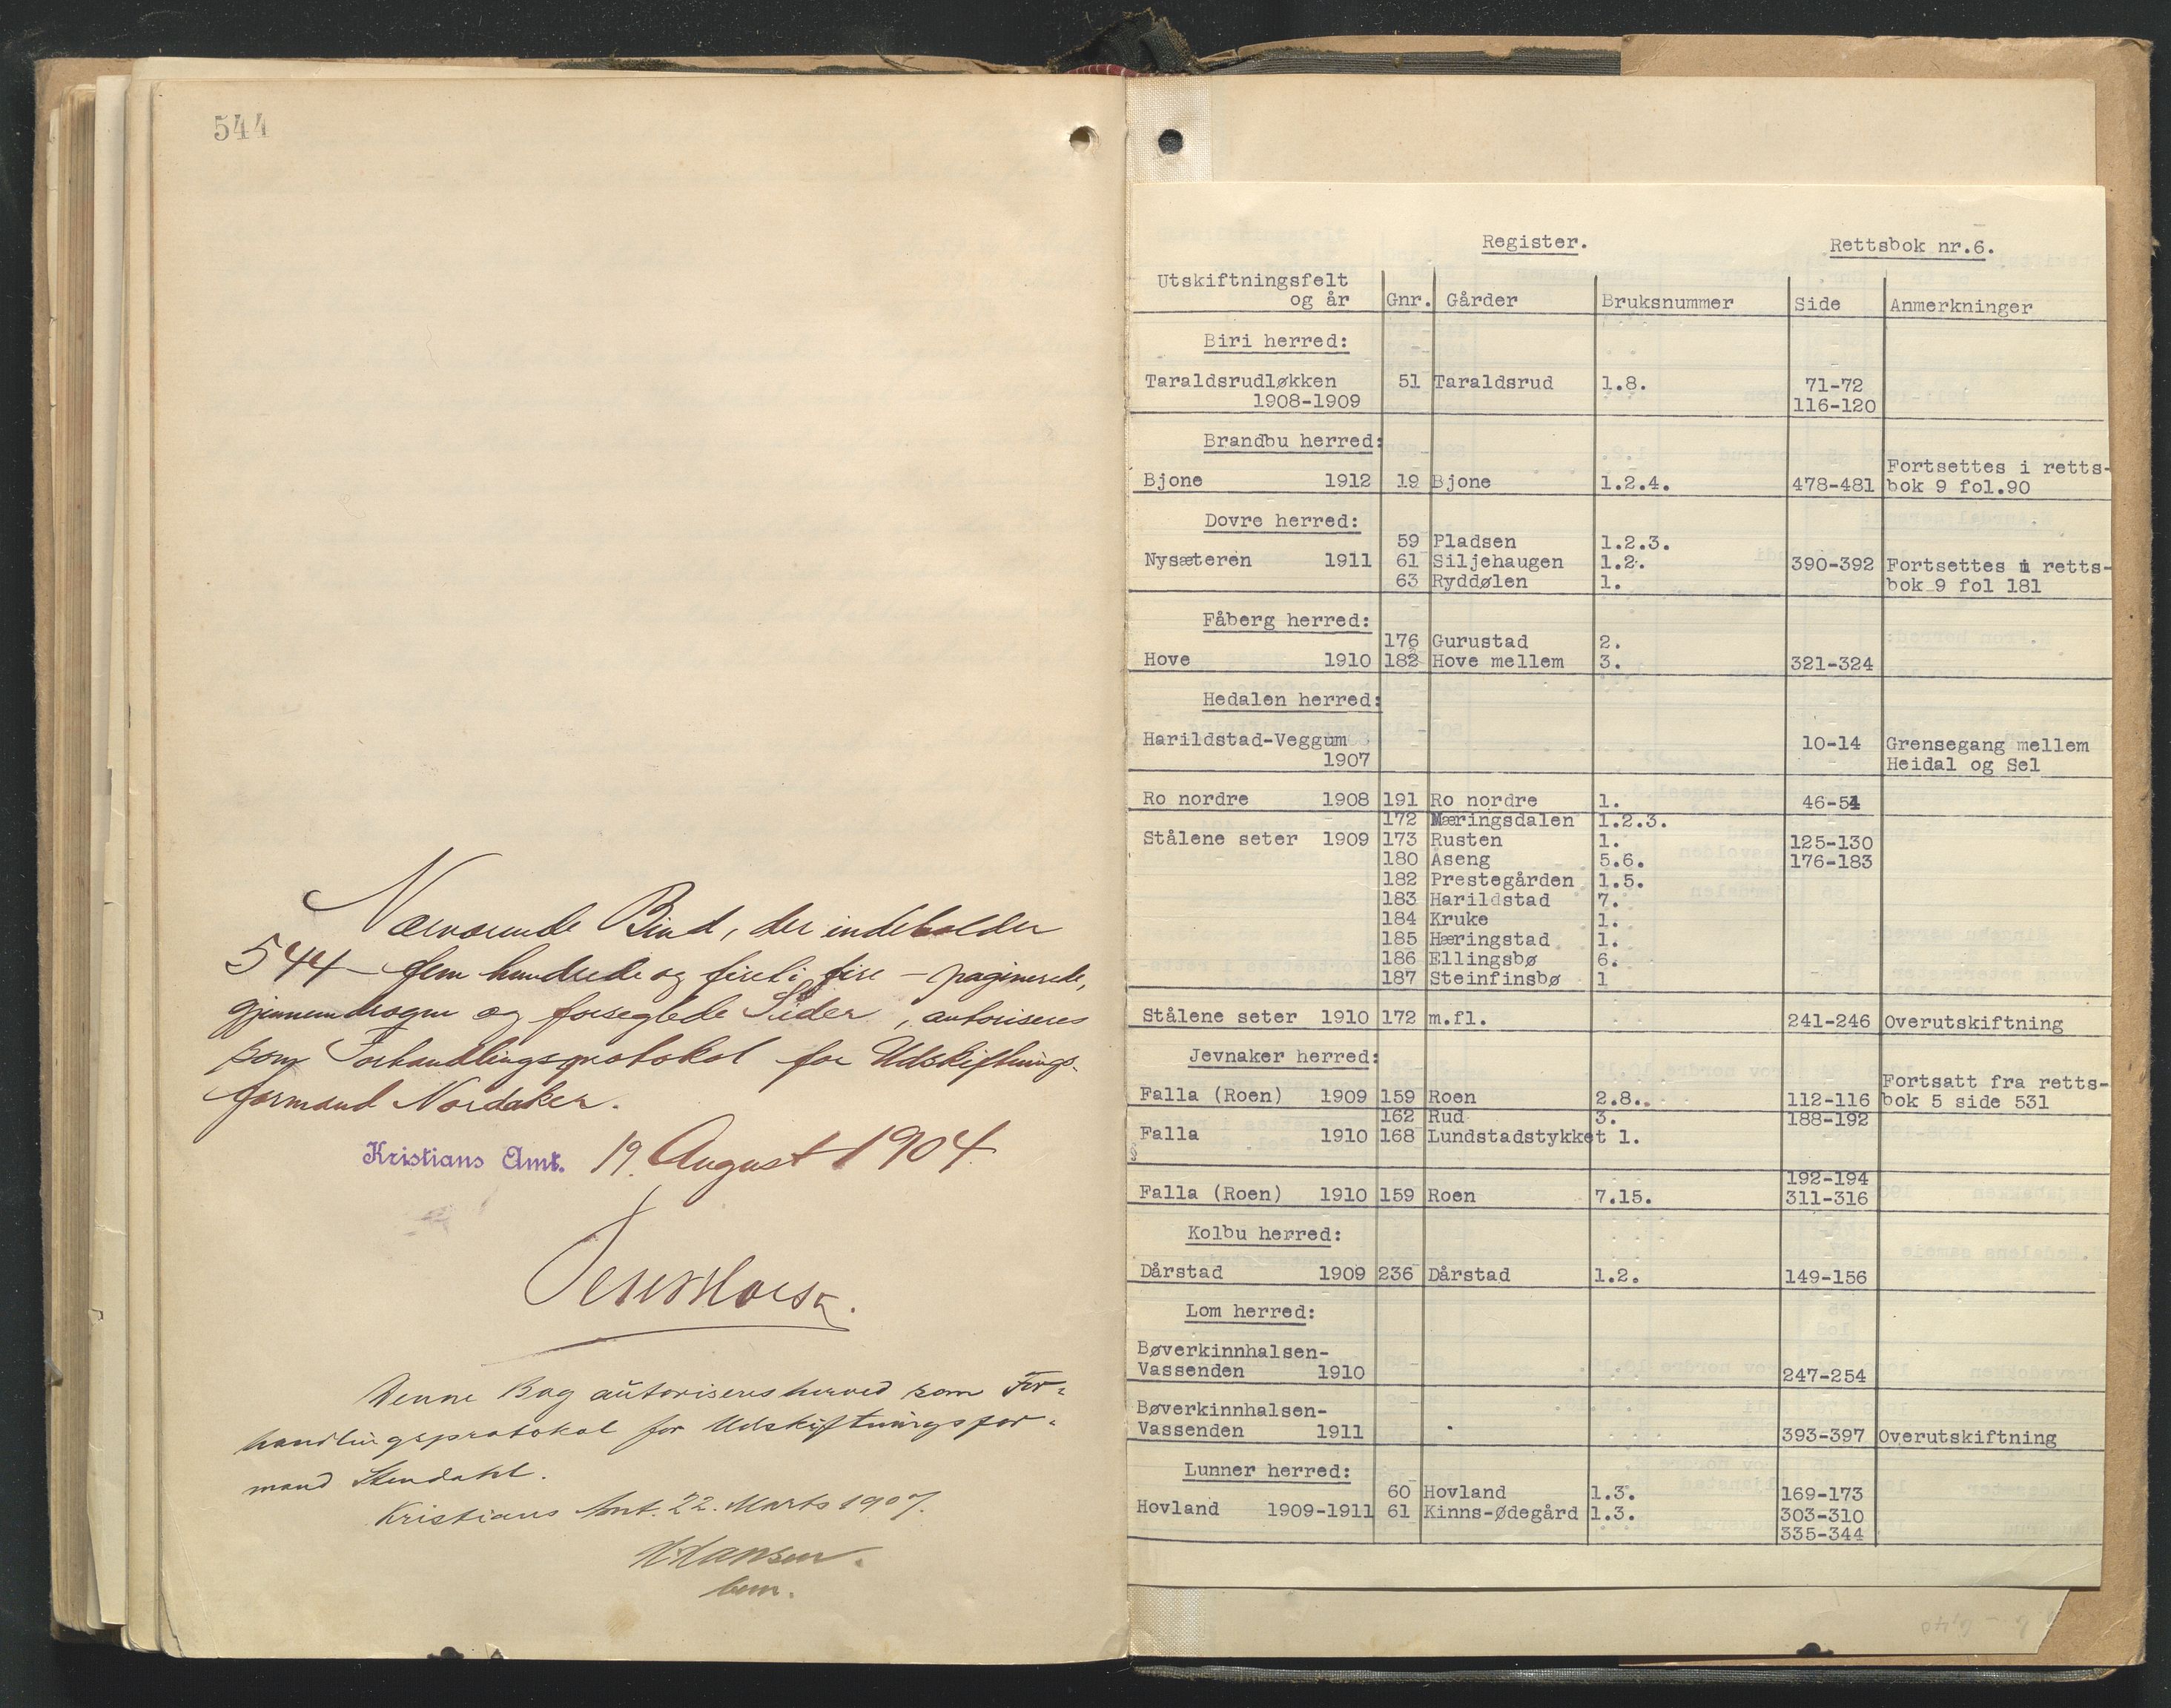 544
Nærværende Bind, der indeholder
544 – fem hundrede og firti fire – paginerede,
gjennemdragne og forseglede Sider, autoriseres
som Forhandlingsprotokol for Udskiftnings-
formand Nordaker.
Kristians Amt. 19. August 1904.
Denne Bog autoriseres herved som For-
handlingsprotokol for Udskiftningsfor-
mand Stendahl.
Kristians Amt. 22. Marts 1907.
Hansen.
Register. Rettsbok nr.6.
Utskiftningsfelt
og år Gnr. Gårder Bruksnummer Side Anmerkninger
Biri herred:
Taraldsrudløkken 51 Taraldsrud 1.8. 71-72
1908-1909 116-120
Brandbu herred:
Fortsettes i retts-
Bjone 1912 19 Bjone 1.2.4. 478-481 bok 9 fol.90
Dovre herred:
59 Pladsen 1.2.3.
Nysæteren 1911 61 Siljehaugen 1.2. 390-392 Fortsettes i retts-
63 Ryddølen 1. bok 9 fol 181
Fåberg herred:
176 Gurustad 2.
Hove 1910 182 Hove mellem 3. 321-324
Hedalen herred:
Harildstad-Veggum 10-14 Grensegang mellem
1907 Heidal og Sel
Ro nordre 1908 191 Ro nordre 1. 46-54
172 Mæringsdalen 1.2.3.
Stålene seter 1909 173 Rusten 1. 125-130
180 Åseng 5.6. 176-183
182 Prestegården 1.5.
183 Harildstad 7.
184 Kruke 1.
185 Hæringstad 1.
186 Ellingsbø 6.
187 Steinfinsbø 1
Stålene seter 1910 172 m.fl. 241-246 Overutskiftning
Jevnaker herred:
Fortsatt fra retts-
Falla (Roen) 1909 159 Roen 2.8. 112-116 bok 5 side 531
162 Rud 3. 188-192
Falla 1910 168 Lundstadstykket 1.
§
192-194
Falla (Roen) 1910 159 Roen 7.15. 311-316
Kolbu herred:
Dårstad 1909 236 Dårstad 1.2. 149-156
Lom herred:
Bøverkinnhalsen-
Vassenden 1910 247-254
Bøverkinnhalsen-
Vassenden 1911 393-397 Overutskiftning
Lunner herred:
60 Hovland 1.3. 169-173
Hovland 1909-1911 61 Kinns-Ødegård 1.3. 303-310
335-344